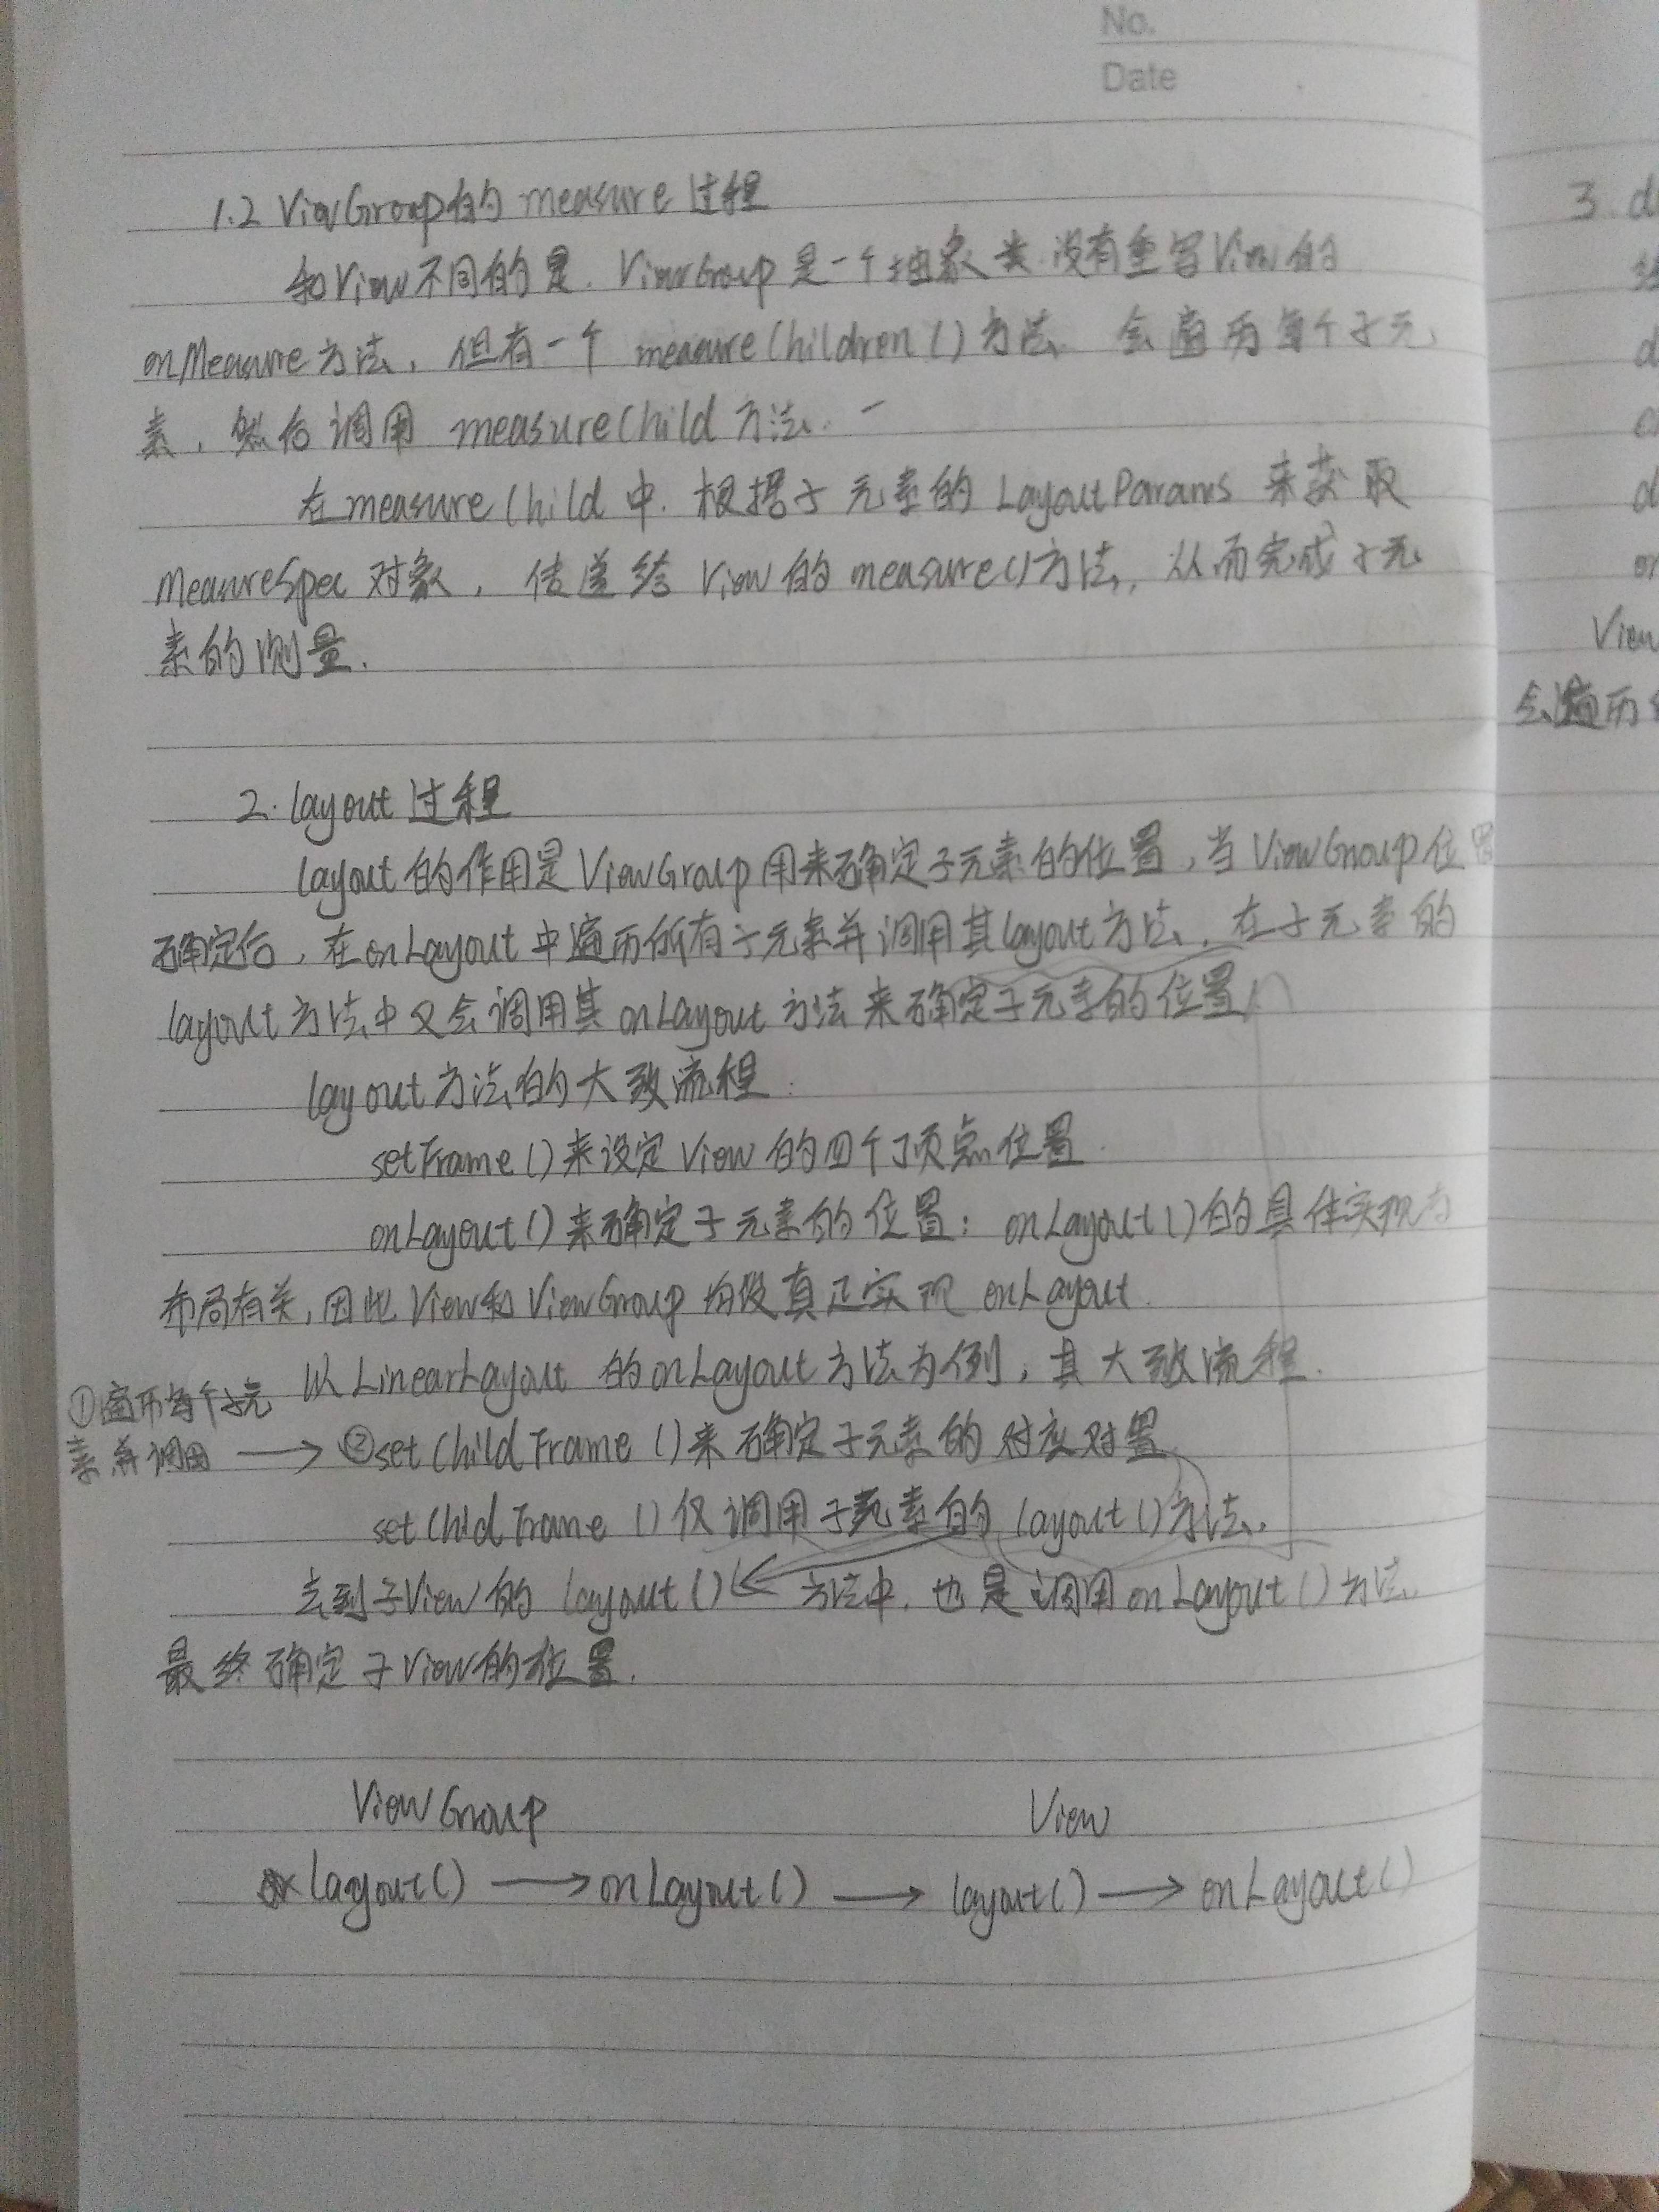 No.
Date
1.2 ViewGroup的 measure 过程
和View不同的是. ViewGroup 是一个抽象类.没有重写View的
onMeasure方法, 但有一个 measureChildren()方法 会遍历每个子元
素, 然后调用 measureChild 方法.
在measureChild 中. 根据子元素的 LayoutParams 来获取
MeasureSpec 对象, 传递给 View 的 measure()方法, 从而完成子元
素的测量.
2. layout 过程
layout 的作用是 ViewGroup 用来确定子元素的位置, 当 ViewGroup 位置
确定后, 在onLayout 中遍历所有子元素并调用其layout方法, 在子元素的
layout 方法中又会调用其 onLayout 方法来确定子元素的位置
layout方法的大致流程.
setFrame()来设定 View 的四个顶点位置.
onLayout()来确定子元素的位置; onLayout()的具体实现与
布局有关, 因此 View和ViewGroup 均没真正实现 onLayout.
以 LinearLayout 的onLayout 方法为例, 其大致流程.
①遍历每个子元
素并调用 → ②setChildFrame()来确定子元素的对应对置
setChildFrame()仅调用子元素的 layout()方法.
去到子View的 layout() 方法中, 也是调用onLayout()方法.
最终确定子View的位置.
ViewGroup View
layout() → onLayout() → layout() → onLayout()
3. d
d
d
on
View
会遍历